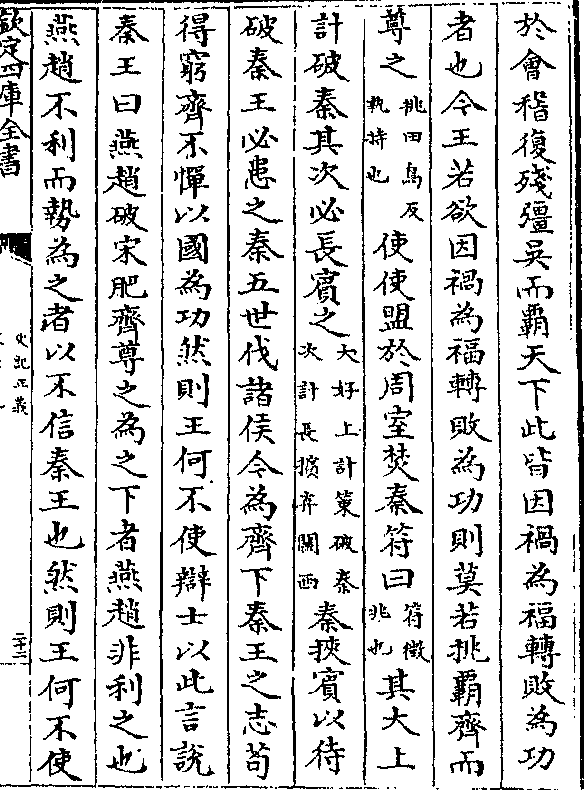 於會稽復殘彊吳而霸天下此皆因禍為福轉敗為功
者也今王若欲因禍為福轉敗為功則莫若挑霸齊而
尊之挑田鳥反執持也使使盟於周室焚秦符曰符徵兆也其大上
計破秦其次必長賓之大好上計策破秦次計長擯棄關西秦挾賓以待
破秦王必患之秦五世伐諸侯今為齊下秦王之志苟
得窮齊不憚以國為功然則王何不使辯士以此言說
秦王曰燕趙破宋肥齊尊之為之下者燕趙非利之也
燕趙不利而勢為之者以不信秦王也然則王何不使
欽定四庫全書
史記正義